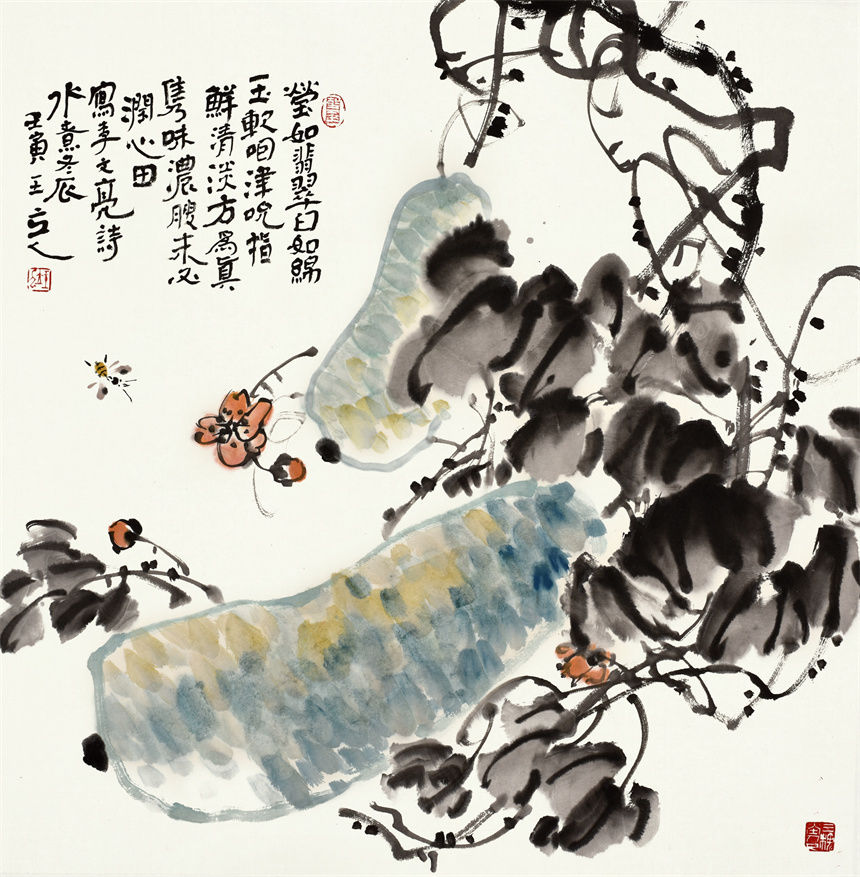 瑩如翡翠白如綿
玉軟咽津吮指
鮮清淡方為真
隽味濃腴未必
潤心田
寫李文亮詩
水煮冬
壬寅王